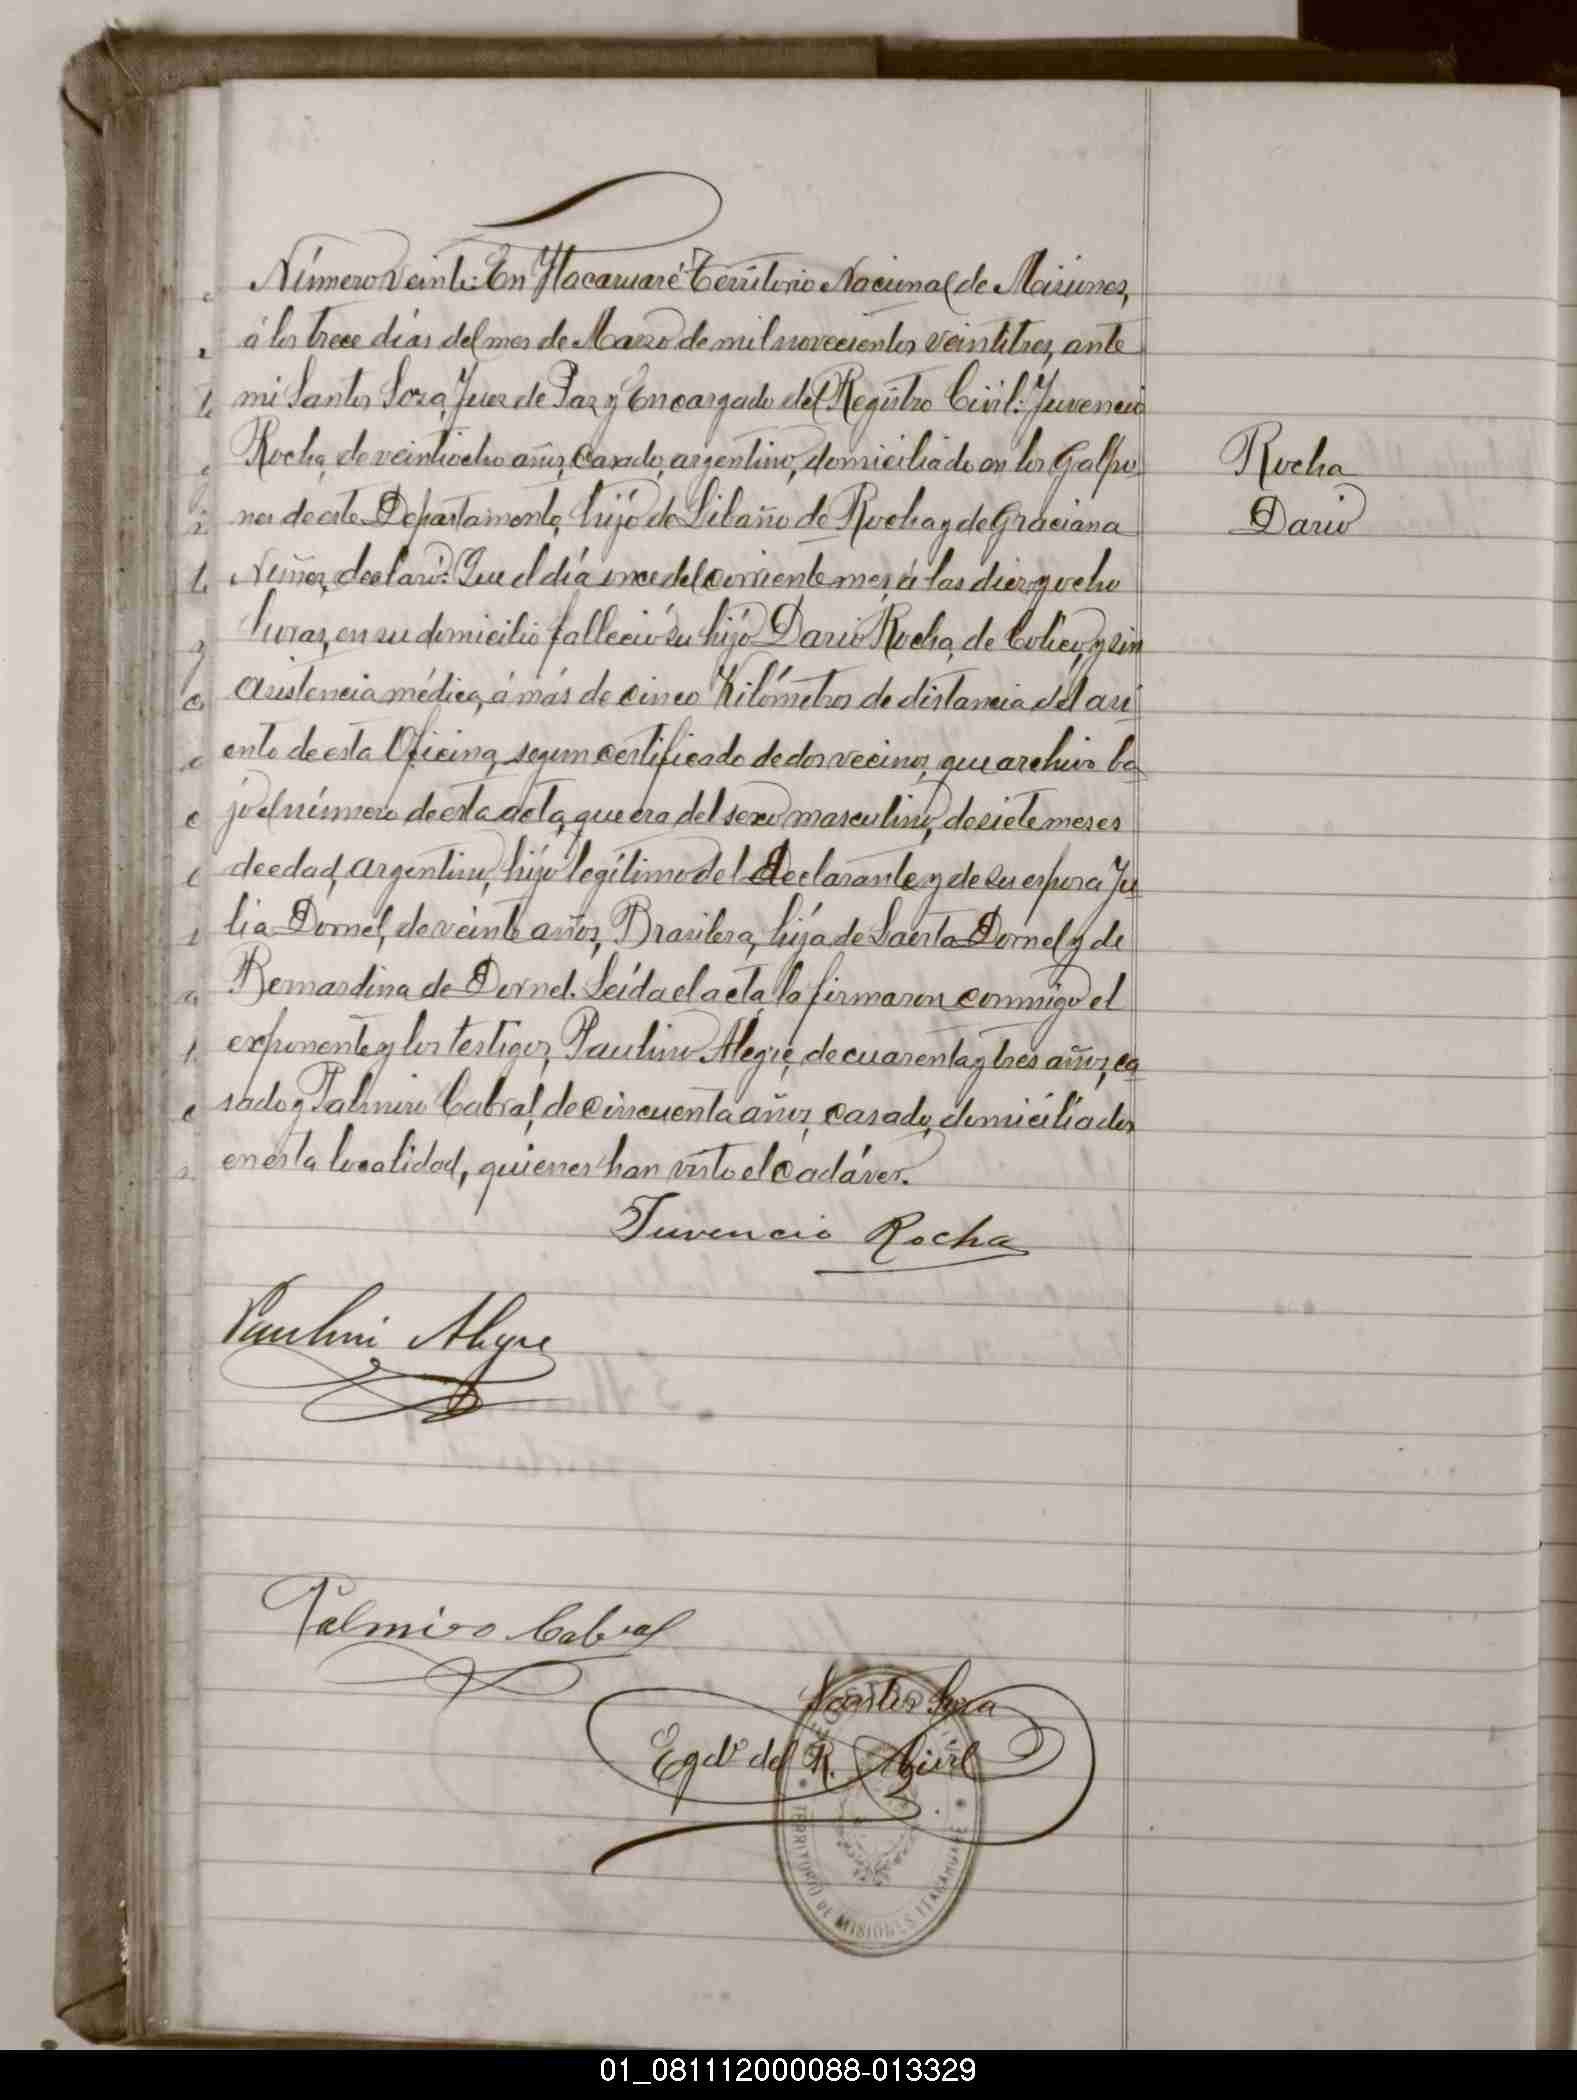 Número veinte: En Ytacaruaré Territorio Nacional de Misiones,
á los trece días del mes de Marzo de mil novecientos veintitres, ante
mi Santos Soza, Juez de Paz y Encargado del Registro Civil: Juvencio
Rocha, de veintiocho años, casado, argentino, domiciliado en los Galpo-
nes de este Departamento, hijo de Libaño de Rocha y de Graciana
Nuñez, declaró: Que el día once del corriente mes, á las diez y ocho
horas, en su domicilio falleció su hijo Dario Rocha, de Colico, y sin
asistencia médica, á más de cinco Kilómetros de distancia del asi-
ento de esta Oficina, segun certificado de dos vecinos, que archivo ba-
jo el número de esta acta, que era del sexo masculino, de siete meses
de edad, argentino, hijo legítimo del Declarante y de su esposa Ju-
lia Dornel, de veinte años, Brasilera, hija de Dornel y de
Bernardina de Dornel. Leída el acta, la firmaron conmigo el
exponente y los testigos, Paulino Alegre, de cuarenta y tres años, ca-
sado y Palmiro Cabral, de cincuenta años, casado, domiciliados
en esta localidad, quienes han visto el cadáver.
Rocha
Dario
Juvencio Rocha
Paulino Alegre
Palmiro Cabral
Santos Soza
Egdo del R. Civil
TERRITORIO DE MISIONES ITACARUARE
01_081112000088-013329